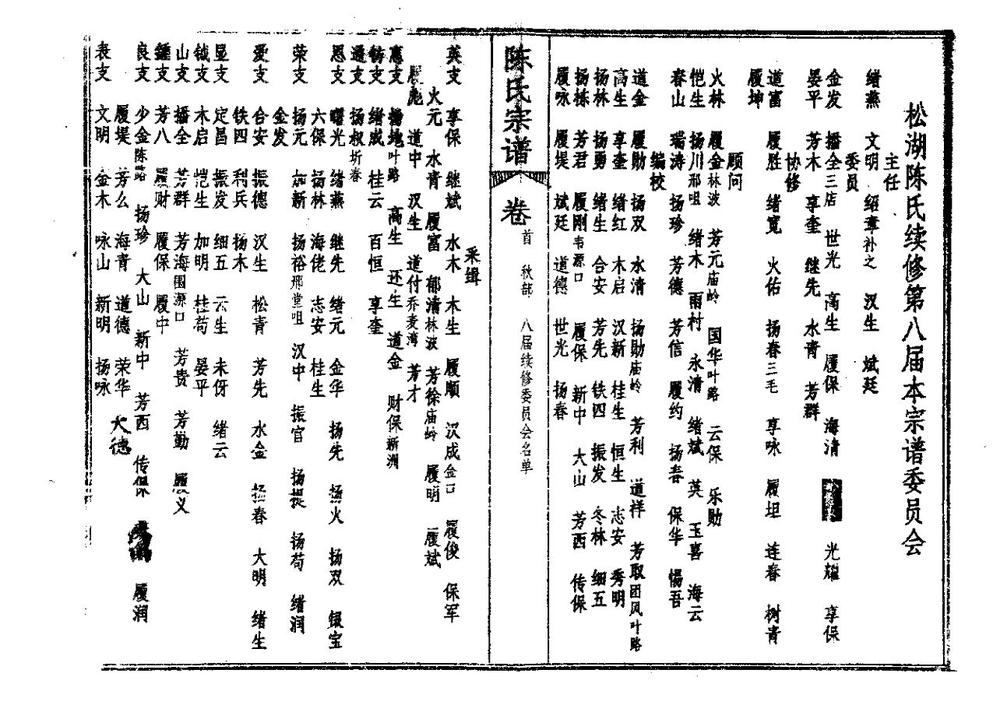 松湖陈氏续修第八届本宗谱委员会
主任
绪燕 文明 绍章补之 汉生 斌廷
委员
金发 播全三店 世光 高生 履保 海清 光耀 享保
晏平 芳木 享奎 继先 水青 芳群
协修
道富 履胜 绪宽 火佑 扬春三毛 享咏 履坦 连春 树青
履坤
顾问
火林 履金林波 芳元庙岭 国华叶路 云保 乐勋
恺生 扬川邢咀 绪木 雨村 永清 绪斌 英 玉喜 海云
春山 瑞涛 扬珍 芳德 芳信 履约 扬春 保华 惕吾
编校
道金 履勋 扬双 水清 扬勋庙岭 芳利 道祥 芳取团风叶路
高生 享奎 绪红 木启 汉新 桂生 恒生 志安 秀明
扬林 扬勇 绪生 合安 芳先 铁四 振发 冬林 细五
扬栋 芳君 履刚韦源口 履保 新中 大山 芳西 传保
履咏 履堤 斌廷 道德 世光 扬春
陈氏宗谱 卷首 秋部 八届续修委员会名单
采缉
英支 享保 继斌 水木 木生 履顺 汉成金口 履俊 保军
火元 水青 履富 郁清林波 芳徐庙岭 履明 履斌
履彪 道中 汉生 道付乔麦湾 芳才
惠支 扬地叶路 高生 还生 道金 财保新洲
铸支 绪成 桂云 百恒 享奎
逊支 扬叔圻春
恩支 曙光 绪燕 继先 绪元 金华 扬先 扬火 扬双 银宝
六保 扬林 海佬 志安 桂生
荣支 扬元 加新 扬裕邢堂咀 汉中 振官 扬提 扬苟 绪润
金发
爱支 合安 振德 汉生 松青 芳先 水金 扬春 大明 绪生
铁四 利兵 扬木
显支 定昌 振发 细五 云生 未伢 绪云
钺支 木启 恺生 加明 桂苟 晏平
山支 播全 芳群 芳海围源口 芳贵 芳勤 履义
锺支 芳八 履财 履保 履中
良支 少金陈路 扬珍 大山 新中 芳西 传保 履润
履堤 芳么 海青 道德 荣华 大德
表支 文明 金木 咏山 新明 扬咏